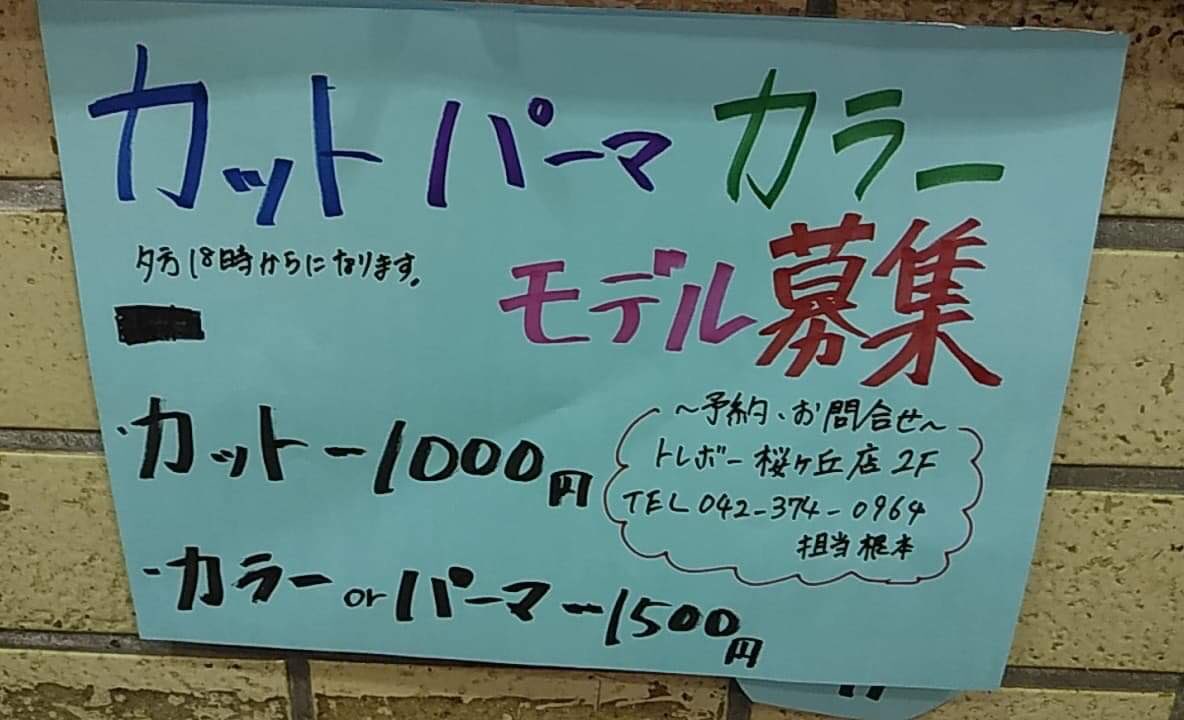 カット パーマ カラー
モデル募集
夕方18時からになります。
・カット－1000円
・カラーorパーマー1500円
～予約、お問合せ～
トレボー桜ヶ丘店2F
TEL 042-374-0964
担当根本